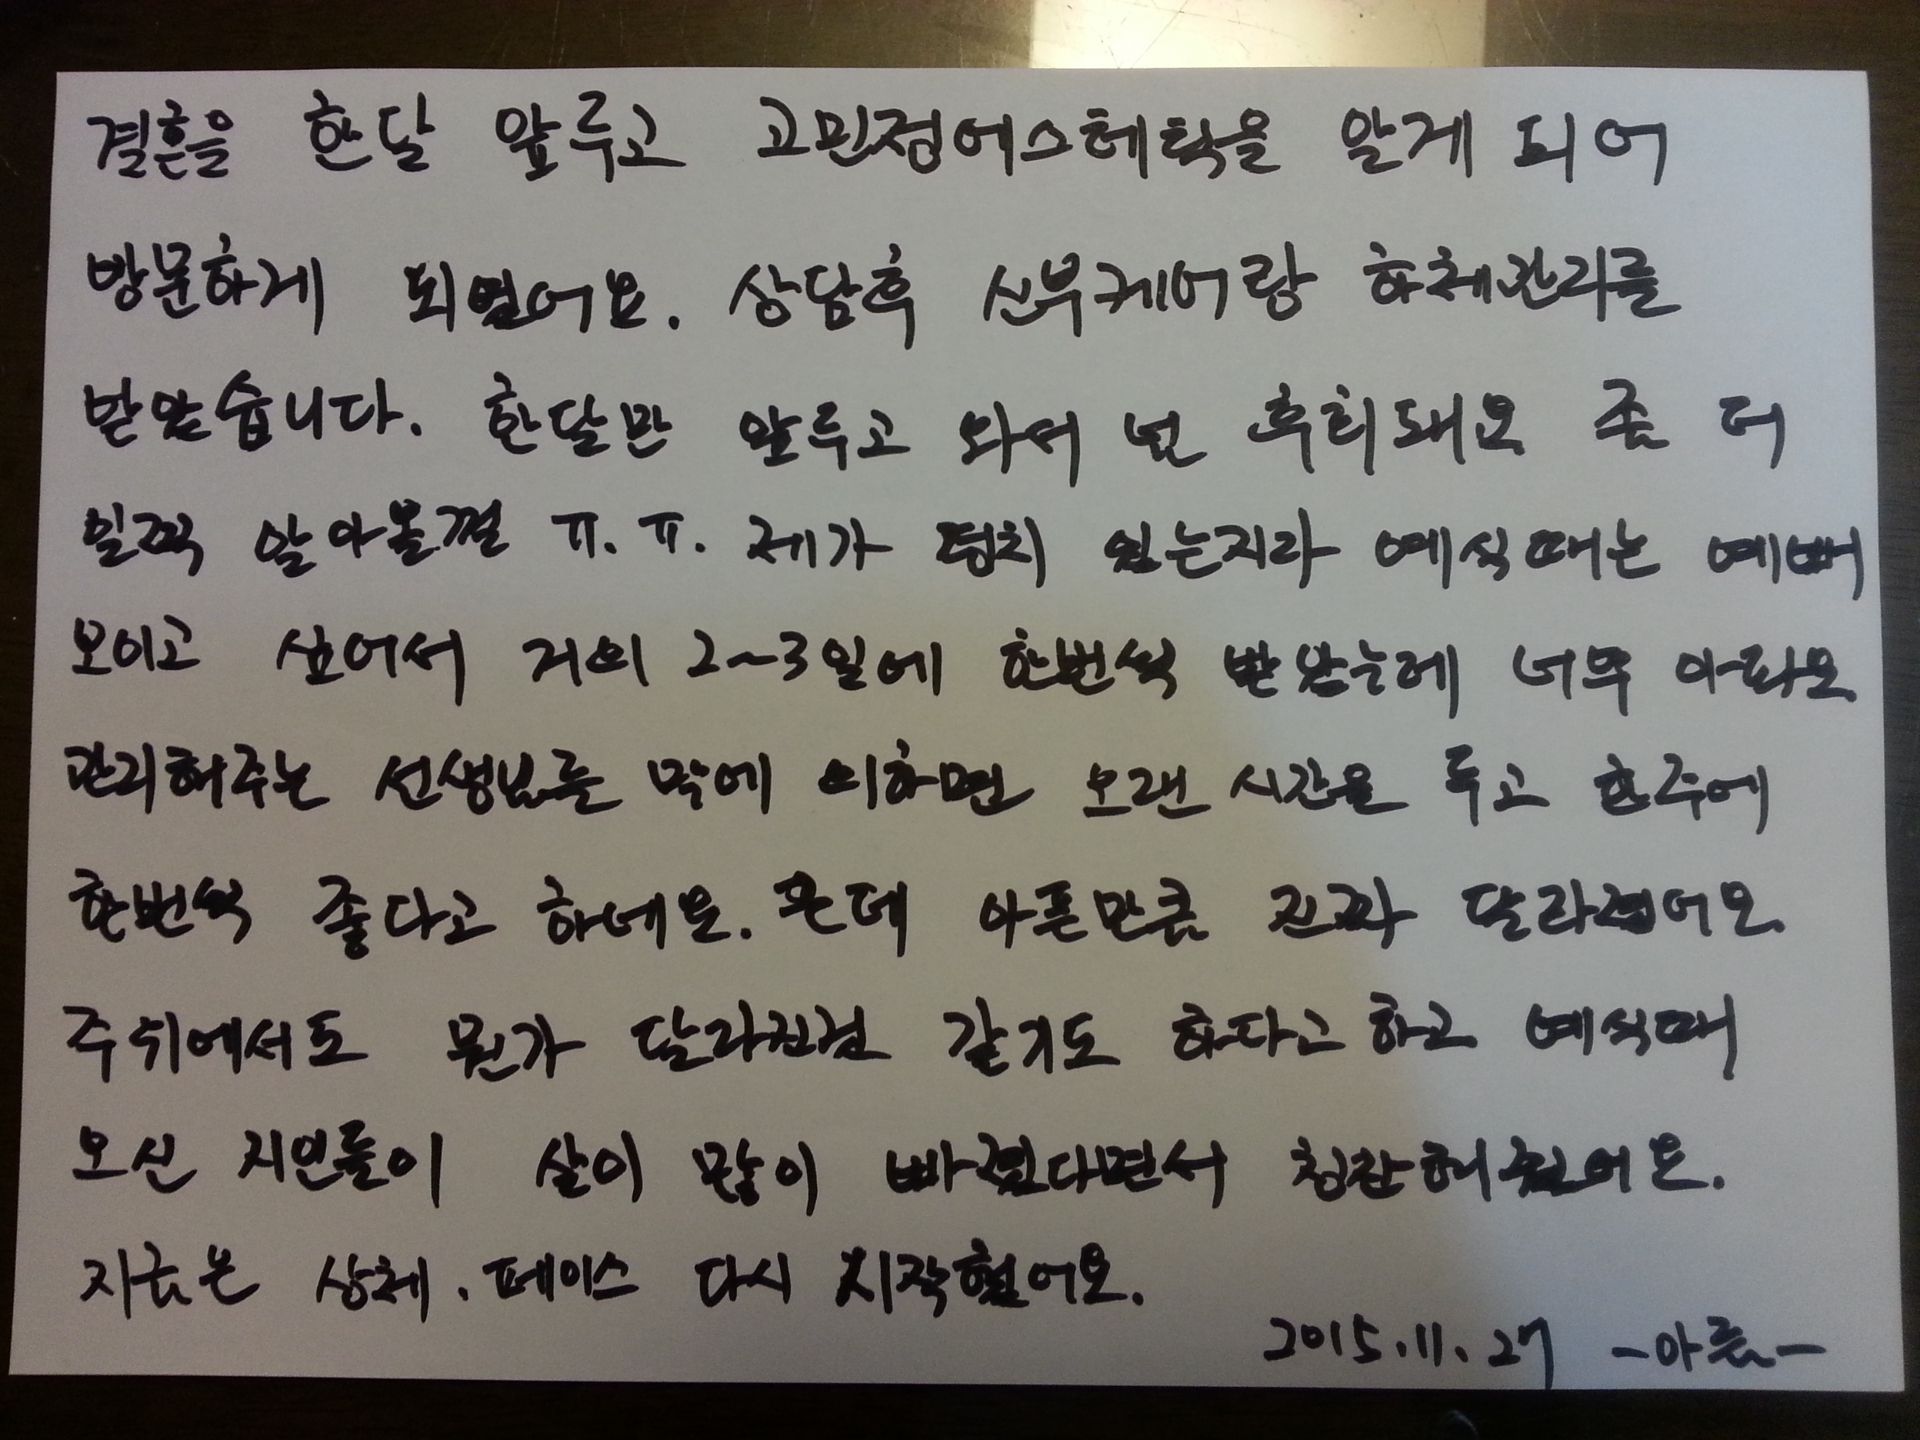 결혼을 한달 앞루고 고민정에스테틱을 알게 되어
방문하게 되었어요. 상담후 신부케어랑 하체관리를
받았습니다. 한달만 앞루고 와서 넘 후회돼요 좀 더
일찍 알아볼껄 ㅠ.ㅠ. 제가 덩치 있는지라 예식때는 예뻐
보이고 싶어서 거의 2~3일에 한번씩 받았는데 너무 아파요
관리해주는 선생님들 말에 의하면 오랜 시간을 두고 한주에
한번씩 좋다고 하네요. 근데 아픈만큼 진짜 달라졌어요.
주위에서도 뭔가 달라진것 같기도 하다고 하고 예식때
오신 지인들이 살이 많이 빠졌다면서 칭찬해줬어요.
지금은 상체, 페이스 다시 시작했어요.
2015.11.27 -아름-